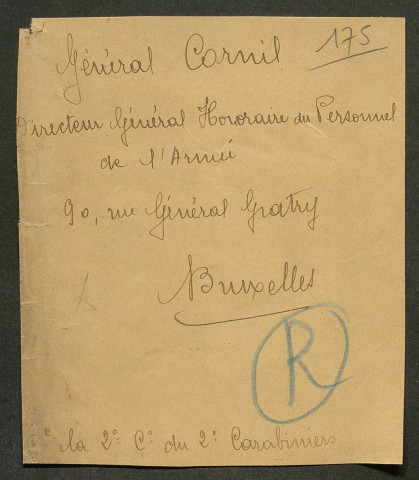 175
Général Cornil
Directeur Général Honoraire du Personnel
de l'Armée
90, rue Général Gratry
Bruxelles
R
la 2e Cie du 2e Carabiniers